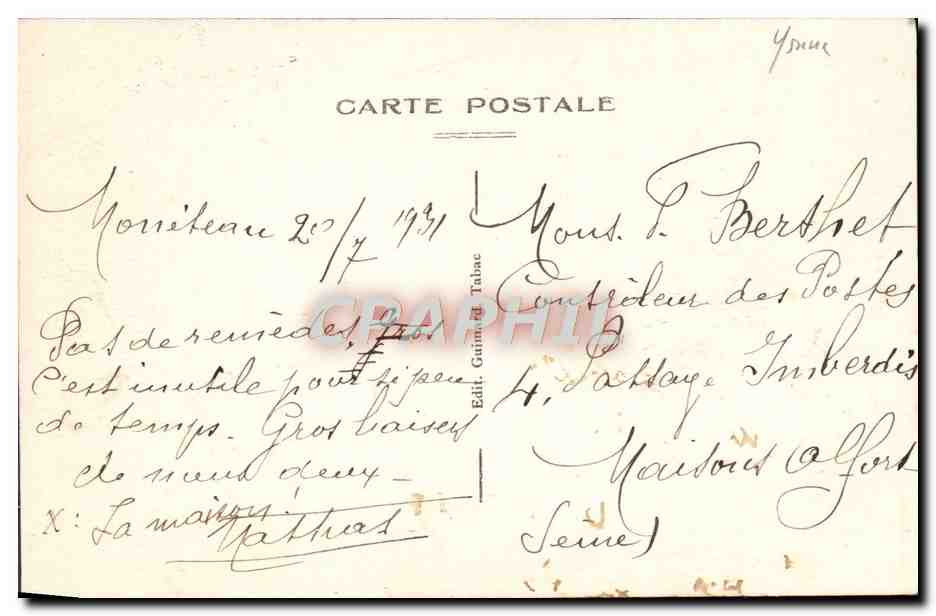 Yonne
CARTE POSTALE
Monéteau 20/7 1931
Pas de remèdes, Gros
c'est inutile pour si peu
de temps. Gros baisers
de nous deux -
X: La maison!
Edit. Guimard Tabac
Mons. P. Berthet
Contrôleur des Postes
4, Passage Imberdis
Maisons Alfort
Seine)
CPAPHIL